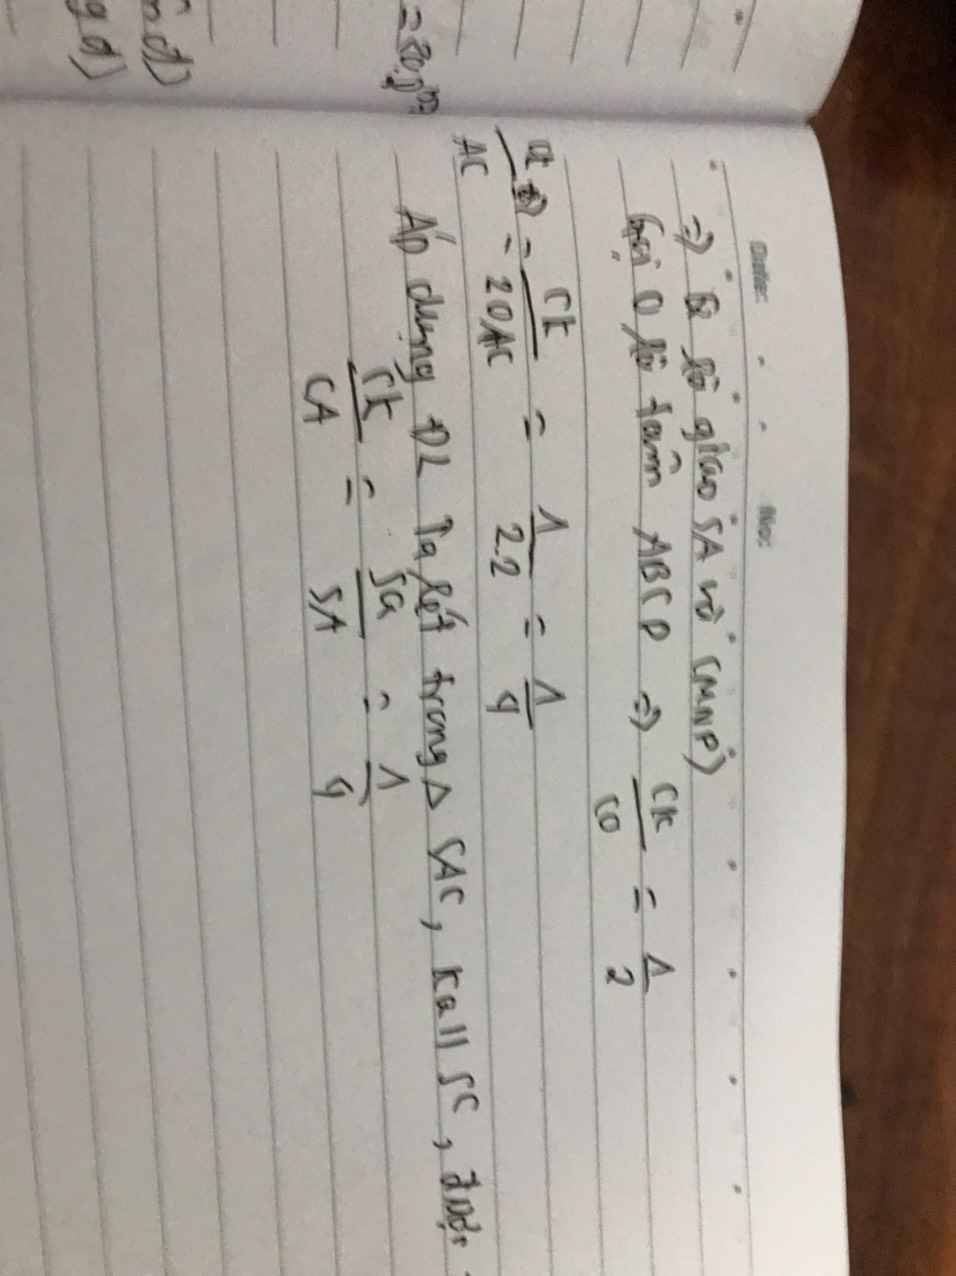 Date: No:
⇒ Q là giao SA và (MNP)
Gọi O là tâm ABCD ⇒ CK/CO = 1/2
CK/AC = CK/2OAC = 1/2.2 = 1/4
Áp dụng ĐL Ta lét trong Δ SAC, KQ // SC, được
CK/CA = SQ/SA = 1/4